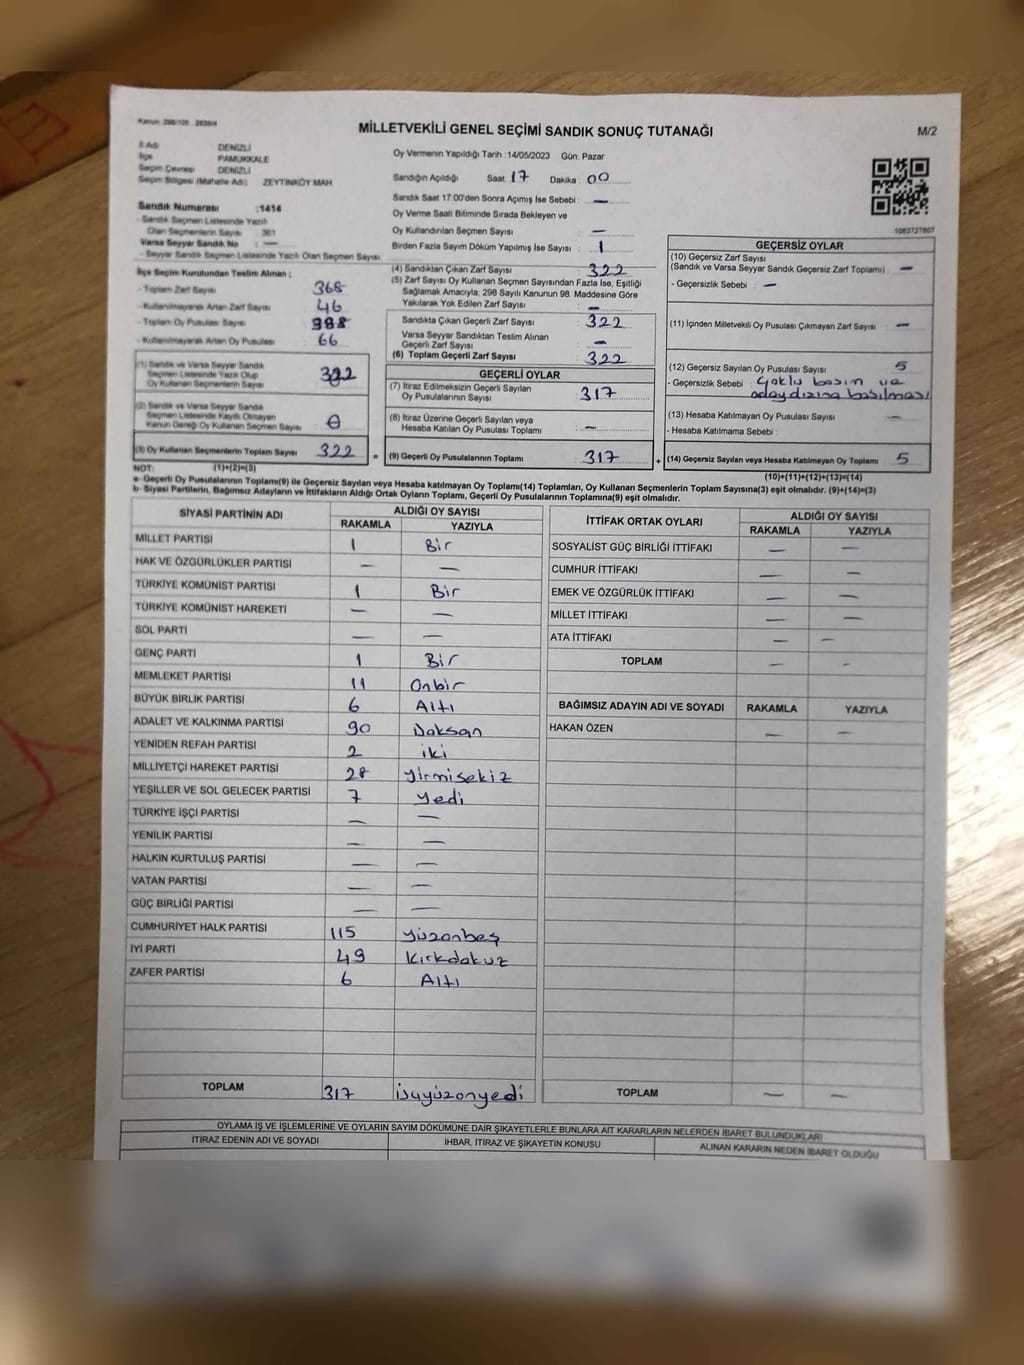 Kanun: 298/105 , 2839/4
MİLLETVEKİLİ GENEL SEÇİMİ SANDIK SONUÇ TUTANAĞI
M/2
İl Adı DENİZLİ
İlçe PAMUKKALE
Seçim Çevresi DENİZLİ
Seçim Bölgesi (Mahalle Adı) ZEYTİNKÖY MAH
Sandık Numarası :1414
- Sandık Seçmen Listesinde Yazılı
Olan Seçmenlerin Sayısı 361
Varsa Seyyar Sandık No : —
- Seyyar Sandık Seçmen Listesinde Yazılı Olan Seçmen Sayısı
Oy Vermenin Yapıldığı Tarih :14/05/2023 Gün: Pazar
Sandığın Açıldığı Saat :17 Dakika : 00
Sandık Saat 17:00'den Sonra Açımış İse Sebebi : —
Oy Verme Saati Bitiminde Sırada Bekleyen ve
Oy Kullandırılan Seçmen Sayısı : —
Birden Fazla Sayım Döküm Yapılmış İse Sayısı : 1
1083727807
İlçe Seçim Kurulundan Teslim Alınan ;
- Toplam Zarf Sayısı 368
- Kullanılmayarak Artan Zarf Sayısı 46
- Toplam Oy Pusulası Sayısı 388
- Kullanılmayarak Artan Oy Pusulası 66
(1) Sandık ve Varsa Seyyar Sandık
Seçmen Listesinde Yazılı Olup
Oy Kullanan Seçmenlerin Sayısı 322
(2) Sandık ve Varsa Seyyar Sandık
Seçmen Listesinde Kayıtlı Olmayan
Kanun Gereği Oy Kullanan Seçmen Sayısı : 0
(3) Oy Kullanan Seçmenlerin Toplam Sayısı 322 =
(4) Sandıktan Çıkan Zarf Sayısı : 322
(5) Zarf Sayısı Oy Kullanan Seçmen Sayısından Fazla İse, Eşitliği
Sağlamak Amacıyla, 298 Sayılı Kanunun 98. Maddesine Göre
Yakılarak Yok Edilen Zarf Sayısı : —
Sandıkta Çıkan Geçerli Zarf Sayısı : 322
Varsa Seyyar Sandıktan Teslim Alınan
Geçerli Zarf Sayısı : —
(6) Toplam Geçerli Zarf Sayısı : 322
GEÇERLİ OYLAR
(7) İtiraz Edilmeksizin Geçerli Sayılan
Oy Pusulalarının Sayısı : 317
(8) İtiraz Üzerine Geçerli Sayılan veya
Hesaba Katılan Oy Pusulası Toplamı : —
(9) Geçerli Oy Pusulalarının Toplamı : 317 +
GEÇERSİZ OYLAR
(10) Geçersiz Zarf Sayısı
(Sandık ve Varsa Seyyar Sandık Geçersiz Zarf Toplamı) : —
- Geçersizlik Sebebi : —
(11) İçinden Milletvekili Oy Pusulası Çıkmayan Zarf Sayısı : —
(12) Geçersiz Sayılan Oy Pusulası Sayısı : 5
- Geçersizlik Sebebi : Çoklu basım ve
aday dizina basılması
(13) Hesaba Katılmayan Oy Pusulası Sayısı : —
- Hesaba Katılmama Sebebi :
(14) Geçersiz Sayılan veya Hesaba Katılmayan Oy Toplamı : 5
NOT: (1)+(2)=(3) (10)+(11)+(12)+(13)=(14)
a- Geçerli Oy Pusulalarının Toplamı(9) ile Geçersiz Sayılan veya Hesaba katılmayan Oy Toplamı(14) Toplamları, Oy Kullanan Seçmenlerin Toplam Sayısına(3) eşit olmalıdır. (9)+(14)=(3)
b- Siyasi Partilerin, Bağımsız Adayların ve İttifakların Aldığı Ortak Oyların Toplamı, Geçerli Oy Pusulalarının Toplamına(9) eşit olmalıdır.
SİYASİ PARTİNİN ADI ALDIĞI OY SAYISI
RAKAMLA YAZIYLA
MİLLET PARTİSİ 1 Bir
HAK VE ÖZGÜRLÜKLER PARTİSİ — —
TÜRKİYE KOMÜNİST PARTİSİ 1 Bir
TÜRKİYE KOMÜNİST HAREKETİ — —
SOL PARTİ — —
GENÇ PARTİ 1 Bir
MEMLEKET PARTİSİ 11 Onbir
BÜYÜK BİRLİK PARTİSİ 6 Altı
ADALET VE KALKINMA PARTİSİ 90 Doksan
YENİDEN REFAH PARTİSİ 2 iki
MİLLİYETÇİ HAREKET PARTİSİ 28 Yirmisekiz
YEŞİLLER VE SOL GELECEK PARTİSİ 7 Yedi
TÜRKİYE İŞÇİ PARTİSİ — —
YENİLİK PARTİSİ — —
HALKIN KURTULUŞ PARTİSİ — —
VATAN PARTİSİ — —
GÜÇ BİRLİĞİ PARTİSİ — —
CUMHURİYET HALK PARTİSİ 115 Yüzonbeş
İYİ PARTİ 49 Kırkdokuz
ZAFER PARTİSİ 6 Altı
TOPLAM 317 üçyüzonyedi
İTTİFAK ORTAK OYLARI ALDIĞI OY SAYISI
RAKAMLA YAZIYLA
SOSYALİST GÜÇ BİRLİĞİ İTTİFAKI — —
CUMHUR İTTİFAKI — —
EMEK VE ÖZGÜRLÜK İTTİFAKI — —
MİLLET İTTİFAKI — —
ATA İTTİFAKI — —
TOPLAM — -
BAĞIMSIZ ADAYIN ADI VE SOYADI RAKAMLA YAZIYLA
HAKAN ÖZEN — —
TOPLAM — —
OYLAMA İŞ VE İŞLEMLERİNE VE OYLARIN SAYIM DÖKÜMÜNE DAİR ŞİKAYETLERLE BUNLARA AİT KARARLARIN NELERDEN İBARET BULUNDUKLARI
İTİRAZ EDENİN ADI VE SOYADI İHBAR, İTİRAZ VE ŞİKAYETİN KONUSU ALINAN KARARIN NEDEN İBARET OLDUĞU